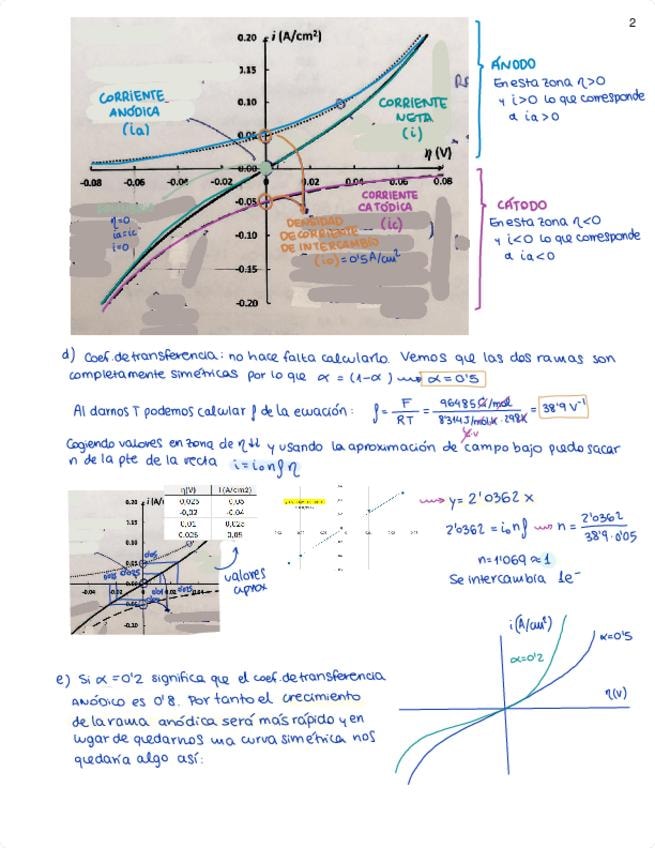 2
i (A/cm²)
0.20
0.15
0.10
0.00
-0.05
-0.10
-0.15
-0.20
-0.08
-0.06
-0.04
0
0.02
0.04
0.06
0.08
η (V)
CORRIENTE
ANÓDICA
(ia)
CORRIENTE
NETA
(i)
CORRIENTE
CATÓDICA
(ic)
η=0
ia=ic
i=0
DENSIDAD
DE CORRIENTE
DE INTERCAMBIO
(io)=0'5A/cm²
ÁNODO
En esta zona η>0
y i>0 lo que corresponde
a ia>0
CÁTODO
En esta zona η<0
y i<0 lo que corresponde
a ia<0
d) Coef. de transferencia: no hace falta calcularlo. Vemos que las dos ramas son
completamente simétricas por lo que α = (1-α) → α=0'5
Al darnos T podemos calcular f de la ecuación: f = F/RT = 96485 C/mol / 8'314 J/mol·K · 298K = 38'9 V⁻¹
Cogiendo valores en zona de η↓↓ y usando la aproximación de campo bajo puedo sacar
n de la pte de la recta i=i₀nfη
η(V) i(A/cm2)
0,025 0,05
-0,02 -0.04
0,01 0,02
valores
aprox
→ y= 2'0362 x
2'0362 = i₀nf → n = 2'0362 / 38'9·0'05
n=1'069 ≈ 1
Se intercambia 1e⁻
e) Si α=0'2 significa que el coef. de transferencia
ANÓDICO es 0'8. Por tanto el crecimiento
de la rama anódica será más rápido y en
lugar de quedarnos una curva simétrica nos
quedaría algo así:
i(A/cm²)
α=0'2
α=0'5
η(V)